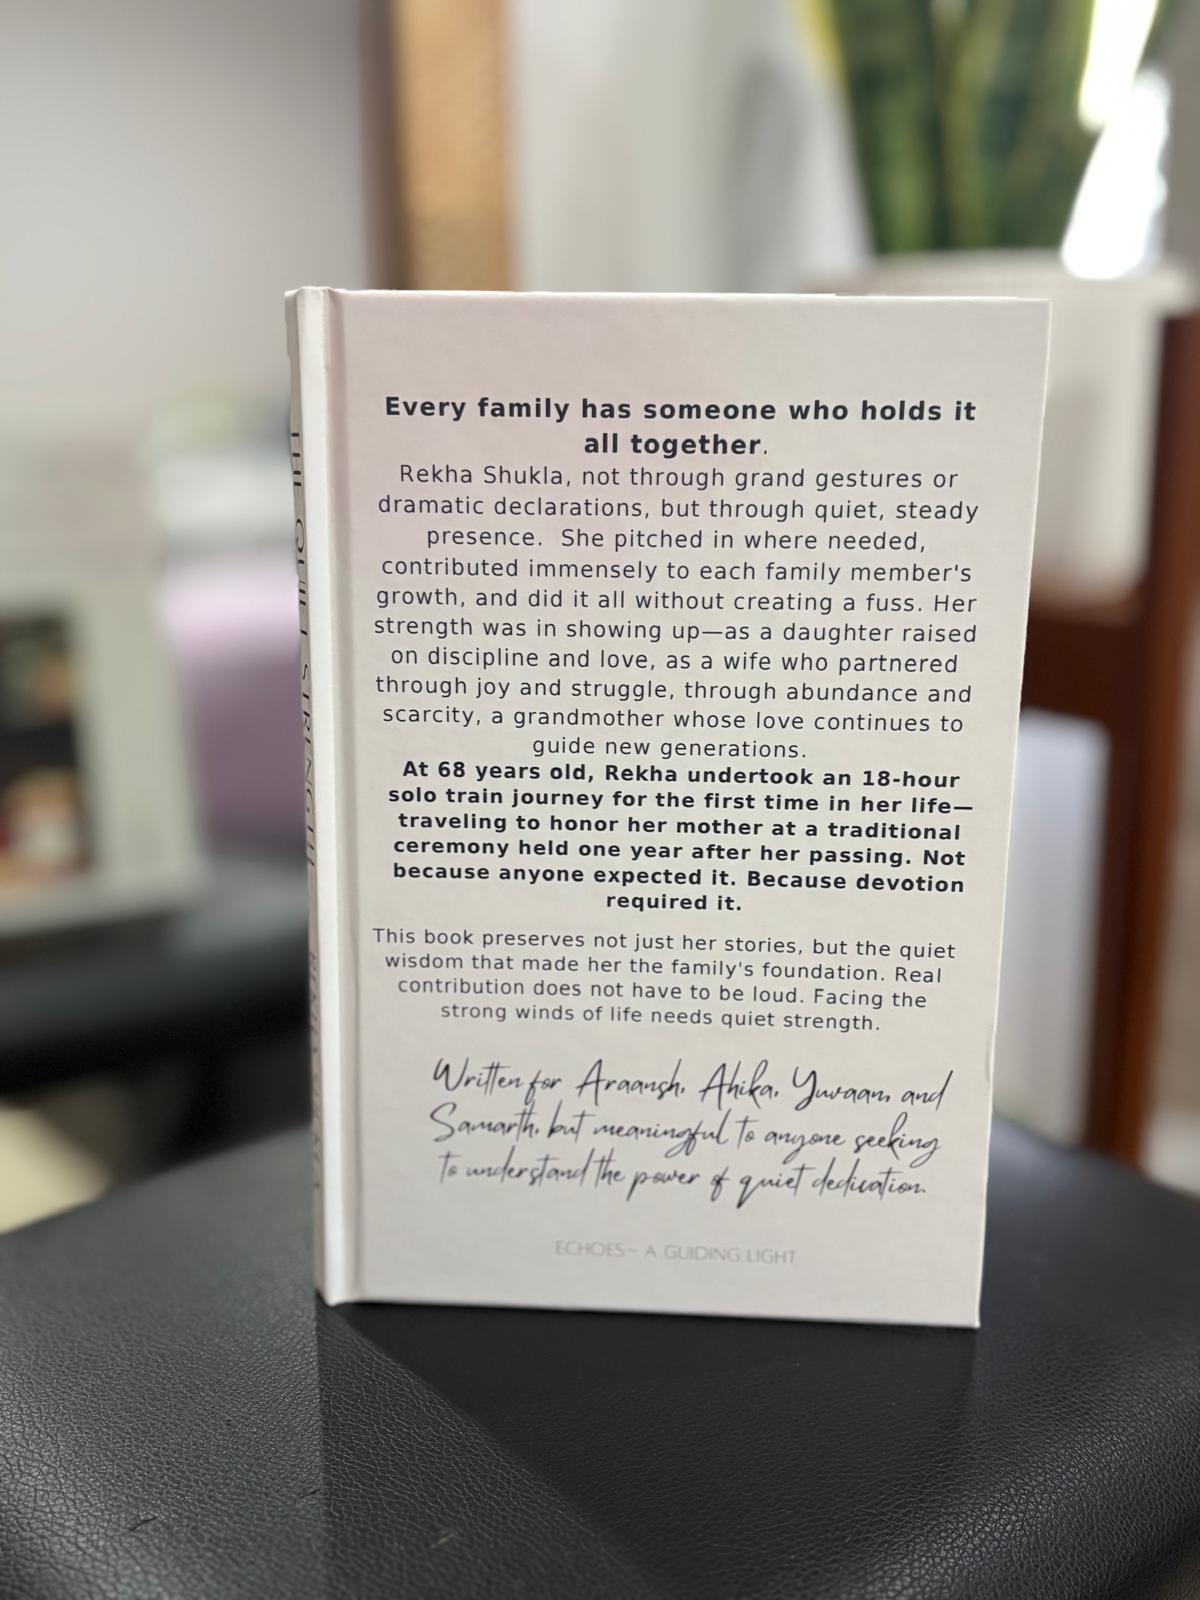 THE QUIET STRENGTH
Every family has someone who holds it
all together.
Rekha Shukla, not through grand gestures or
dramatic declarations, but through quiet, steady
presence.  She pitched in where needed,
contributed immensely to each family member's
growth, and did it all without creating a fuss. Her
strength was in showing up—as a daughter raised
on discipline and love, as a wife who partnered
through joy and struggle, through abundance and
scarcity, a grandmother whose love continues to
guide new generations.
At 68 years old, Rekha undertook an 18-hour
solo train journey for the first time in her life—
traveling to honor her mother at a traditional
ceremony held one year after her passing. Not
because anyone expected it. Because devotion
required it.
This book preserves not just her stories, but the quiet
wisdom that made her the family's foundation. Real
contribution does not have to be loud. Facing the
strong winds of life needs quiet strength.
Written for Araansh, Ahika, Yuvaan, and
Samarth, but meaningful to anyone seeking
to understand the power of quiet dedication.
ECHOES- A GUIDING LIGHT